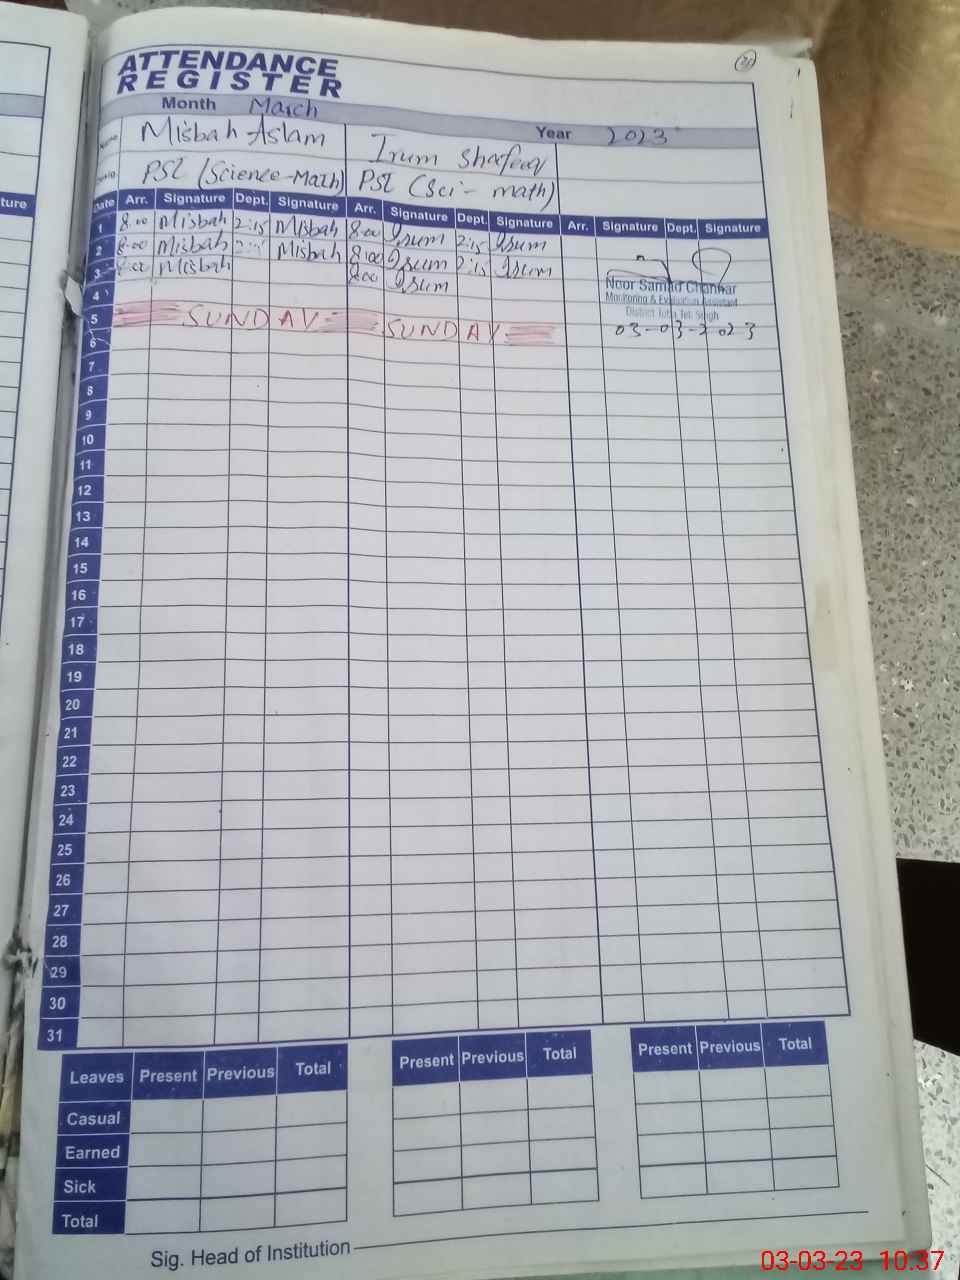 ATTENDANCE
REGISTER
Month March
Year 2023
Misbah Aslam Irum Shafeaq
PSL (Science-Math) PSL (Sci- math)
Date Arr. Signature Dept. Signature Arr. Signature Dept. Signature Arr. Signature Dept. Signature
1 8:00 Misbah 2:15 Misbah 8:00 Irum 2:15 Irum
2 8:00 Misbah Misbah 8:00 Irum 2:15 Irum
3 8:00 Misbah 8:00 Irum
Noor Samad Channar
Monitoring & Evaluation Assistant
District
03-03-2023
4
5 SUNDAY SUNDAY
6
7
8
9
10
11
12
13
14
15
16
17
18
19
20
21
22
23
24
25
26
27
28
29
30
31
Leaves Present Previous Total Present Previous Total Present Previous Total
Casual
Earned
Sick
Total
Sig. Head of Institution
ture
03-03-23 10:37